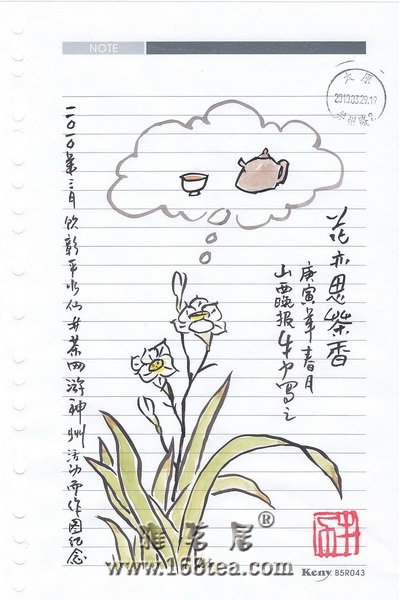 NOTE
太原
2010.03.29.17
花亦思茶香
庚寅年春月
山西晚报牛力写之
二〇一〇年三月饮彰平水仙并茶网游神州活动而作图纪念
雅茗居®
www.168tea.com
Keny. B5R043